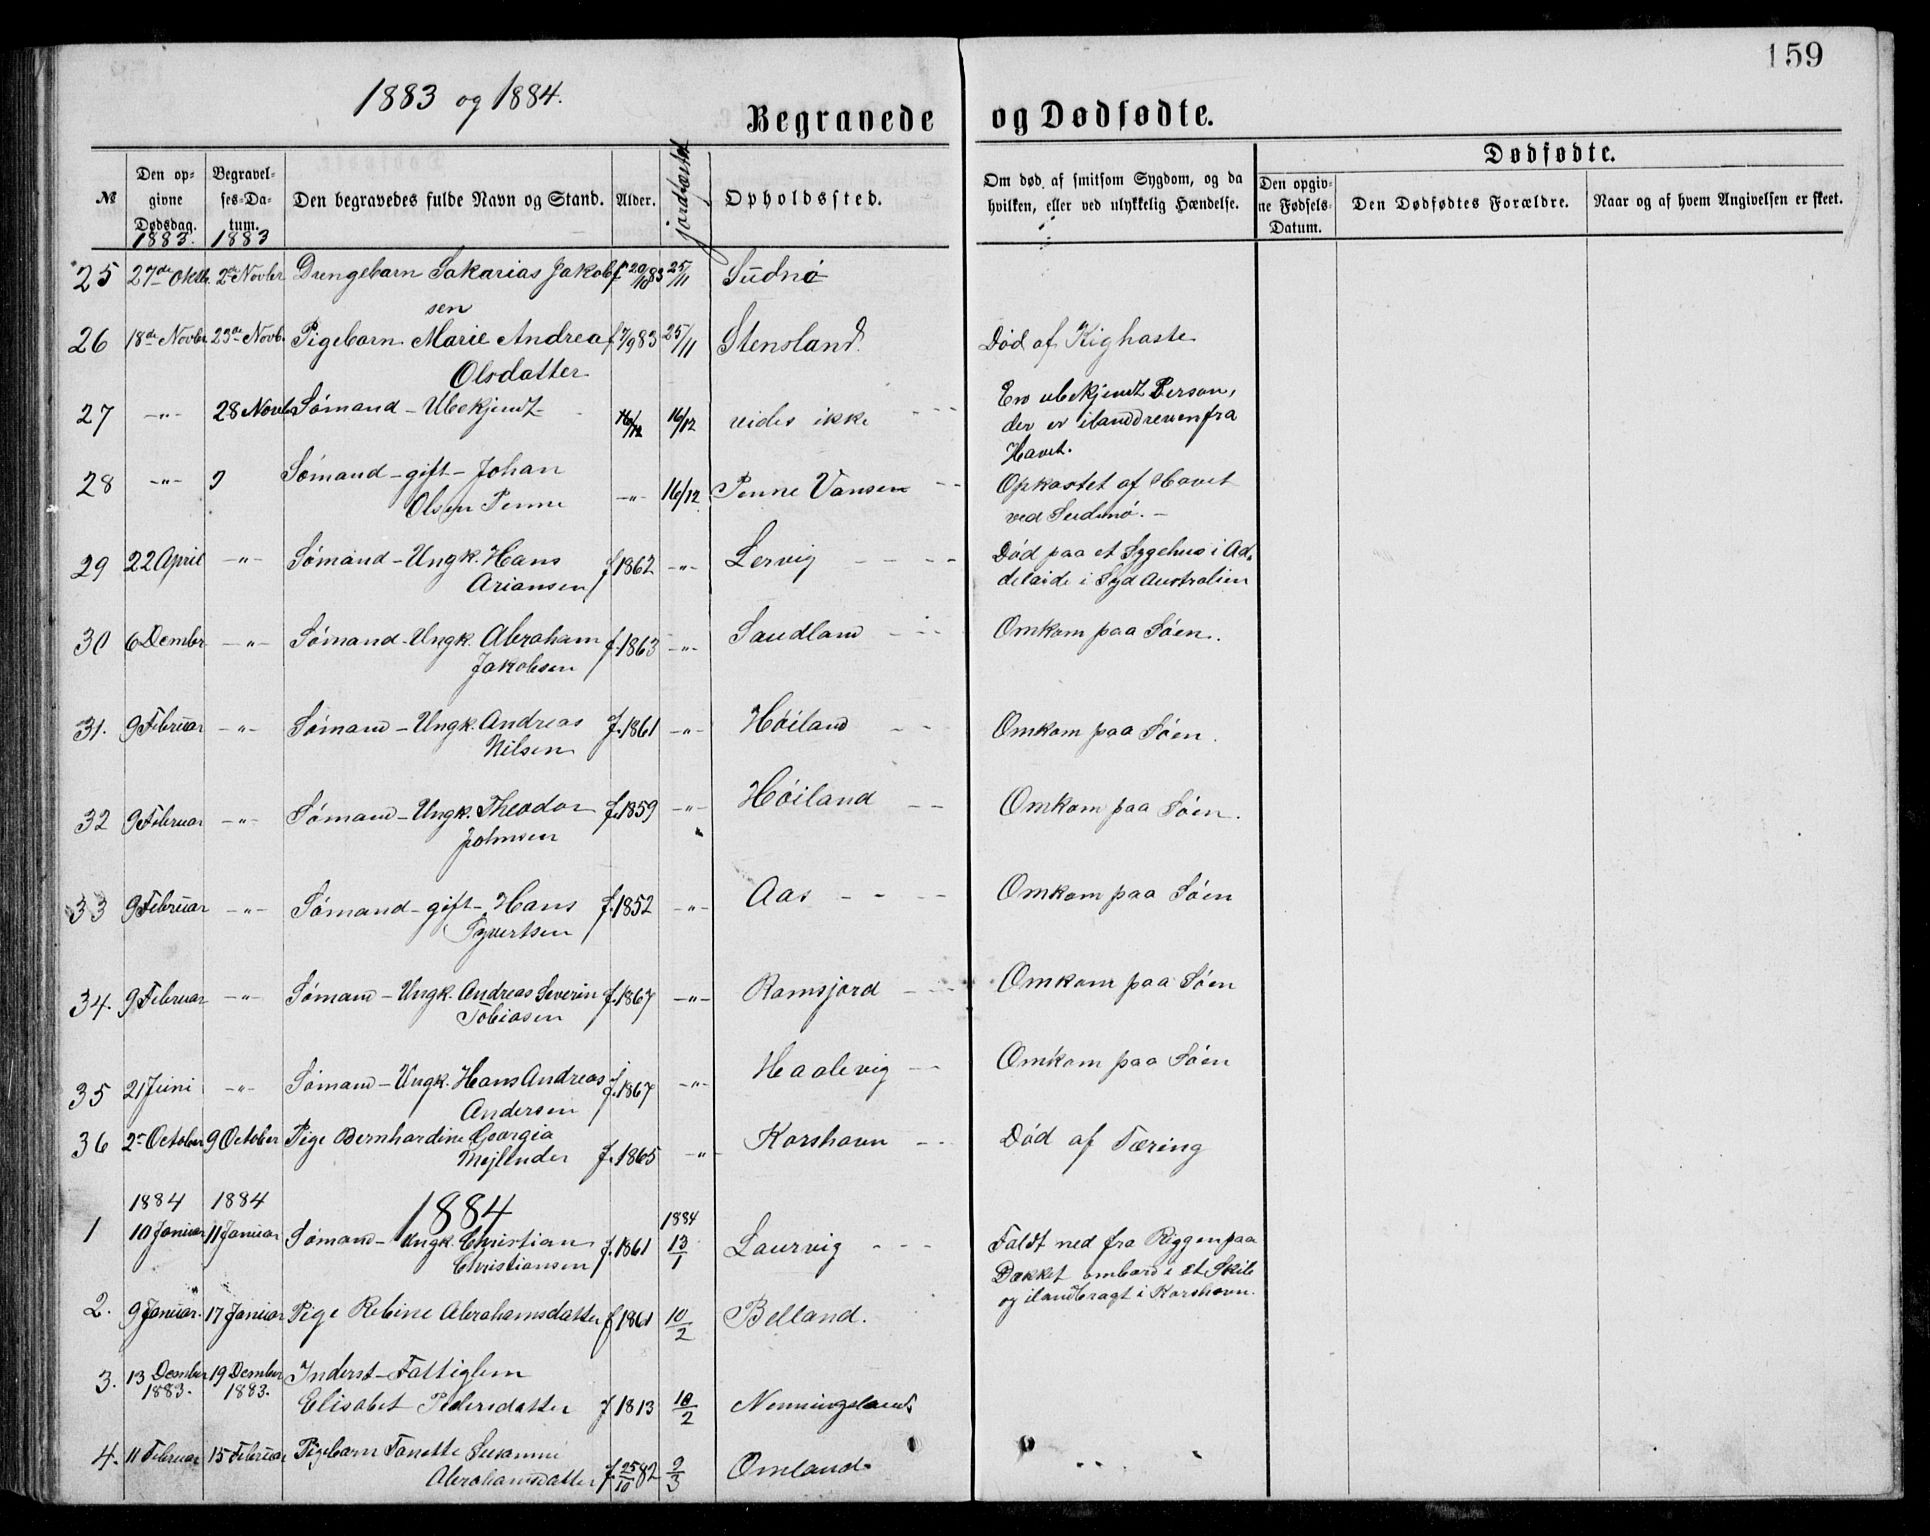 159
1883 og 1884.
Begravede og Dødfødte.
Dødfødte.
№ Den op- givne Dødsdag. Begravel- ses-Da- tum. Den begravedes fulde Navn og Stand. Alder. jordfæstet Opholdssted. Om død af smitsom Sygdom, og da hvilken, eller ved ulykkelig Hændelse. Den opgiv- ne Fødsels- Datum. Den Dødfødtes Forældre. Naar og af hvem Angivelsen er skeet.
1883. 1883
25 27de Oktbr. 2de Novbr Drengebarn Sakarias Jakob- f 20/10 83 25/11 Sudnø
sen
26 18de Novbr 23de Novb. Pigebarn Marie Andrea f 7/9 83 25/11 Stensland. Død af Kighoste
Olsdatter
27 -"- 28 Novbr Sømand - Ubekjendt - 16/12 16/12 veides ikke En ubekjendt Person,
der er ilanddreven fra
Havet.
28 -"- Sømand - gift - Johan
Olsen Penne -"- 16/12 Penne Vansen Opkastet af Havet
ved Sudnø. -
29 22 April -"- Sømand - Ungk. Hans f 1862 -"- Lervig Død paa et Sygehus i Ad-
Ariansen delaide i Syd Australien
30 6 Dembr -"- Sømand - Ungk. Abraham f. 1863 -"- Sandland Omkom paa Søen.
Jakobsen
31. 9 Februar -"- Sømand - Ungk. Andreas f. 1861 -"- Høiland Omkom paa Søen.
Nilsen
32 9 Februar -"- Sømand - Ungk. Theodor f. 1859 -"- Høiland Omkom paa Søen.
Johnsen
33 9 Februar -"- Sømand - gift - Hans f. 1852 -"- Aas Omkom paa Søen
Syvertsen
34. 9 Februar -"- Sømand - Ungk. Andreas Severin f. 1867 -"- Ramsjord Omkom paa Søen
Tobiasen
35 21 Juni -"- Sømand - Ungk. Hans Andreas f. 1867 -"- Haalevig Omkom paa Søen
Andersen
36 2 October 9 October Pige Bernhardine Georgia
Mejlender f. 1865 -"- Korshavn Død af Tæring
1884 1884 1884
1 10 Januar 11 Januar Sømand - Ungk. Christian f. 1861 1884 13/1 Laurvig Faldt ned fra Riggen paa
Christiansen Dækket ombord i et Skib
og ilandbragt i Korshavn.
2. 9 Januar. 17 Januar Pige Rebine Abrahamsdatter f 1861 10/2 Belland.
3. 13 Dember 1883. 19 Dember 1883. Inderst - Fattiglem
Elisabet Pedersdatter f 1813 10/2 Nenningsland.
4. 11 Februar 15 Februar Pigebarn Tonette Susanne
Abrahamsdatter f. 25/10 82 2/3 Omland.